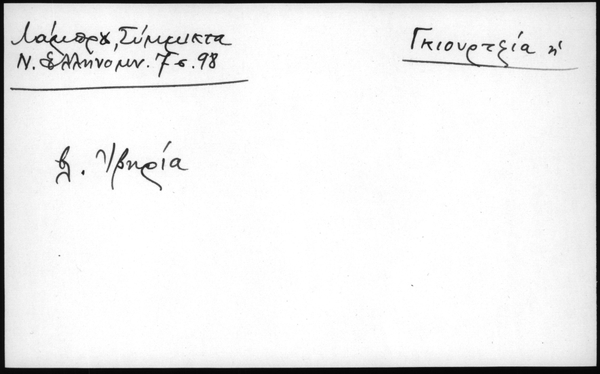 Λάμπρου, Σύμμικτα
Ν. Ελληνομν. 7 σ. 98
Γκιουρτζία ἡ
βλ. Ἰβηρία